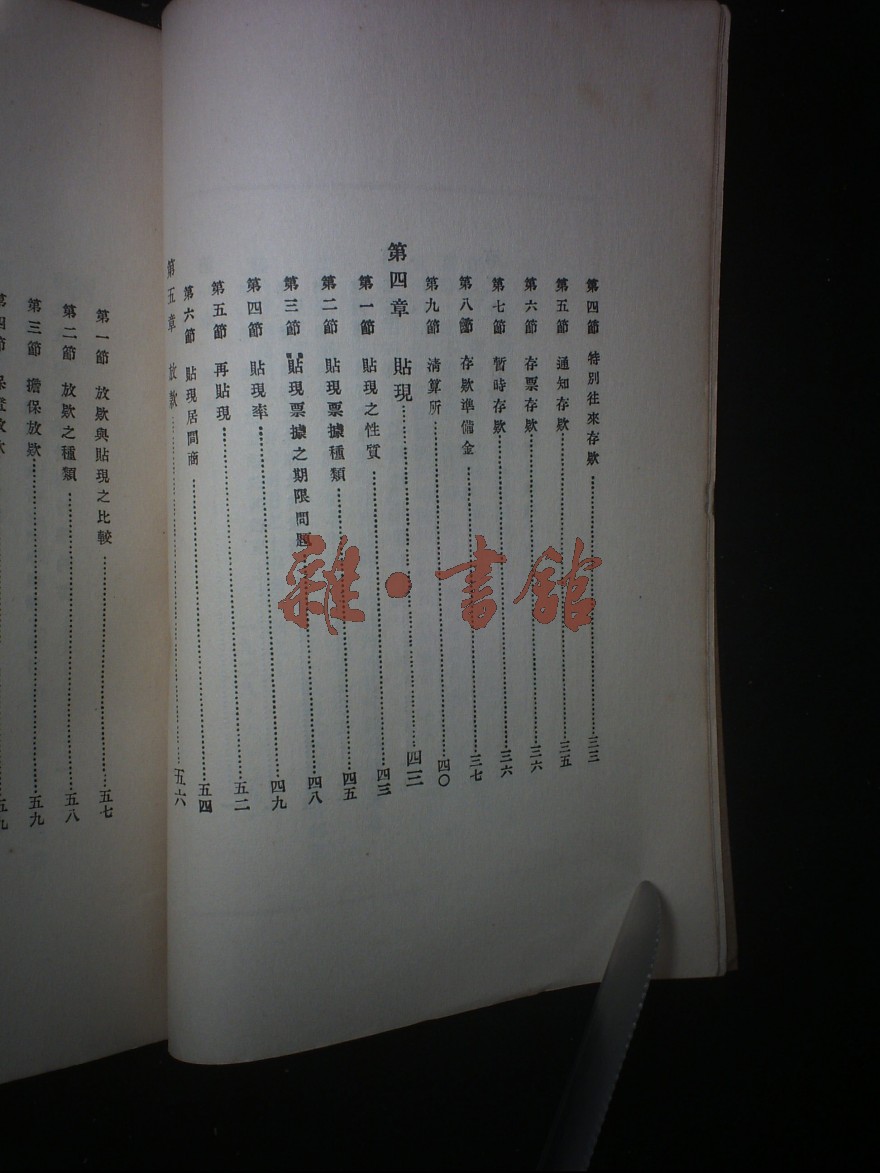 第四節 特別往來存欵 三三
第五節 通知存欵 三五
第六節 存票存欵 三六
第七節 暫時存欵 三六
第八節 存欵準備金 三七
第九節 清算所 四〇
第四章 貼現 四三
第一節 貼現之性質 四三
第二節 貼現票據種類 四五
第三節 貼現票據之期限問題 四八
第四節 貼現率 四九
第五節 再貼現 五二
第六節 貼現居間商 五四
第五章 放欵 五六
第一節 放欵與貼現之比較 五七
第二節 放欵之種類 五八
第三節 擔保放欵 五九
雜·書館